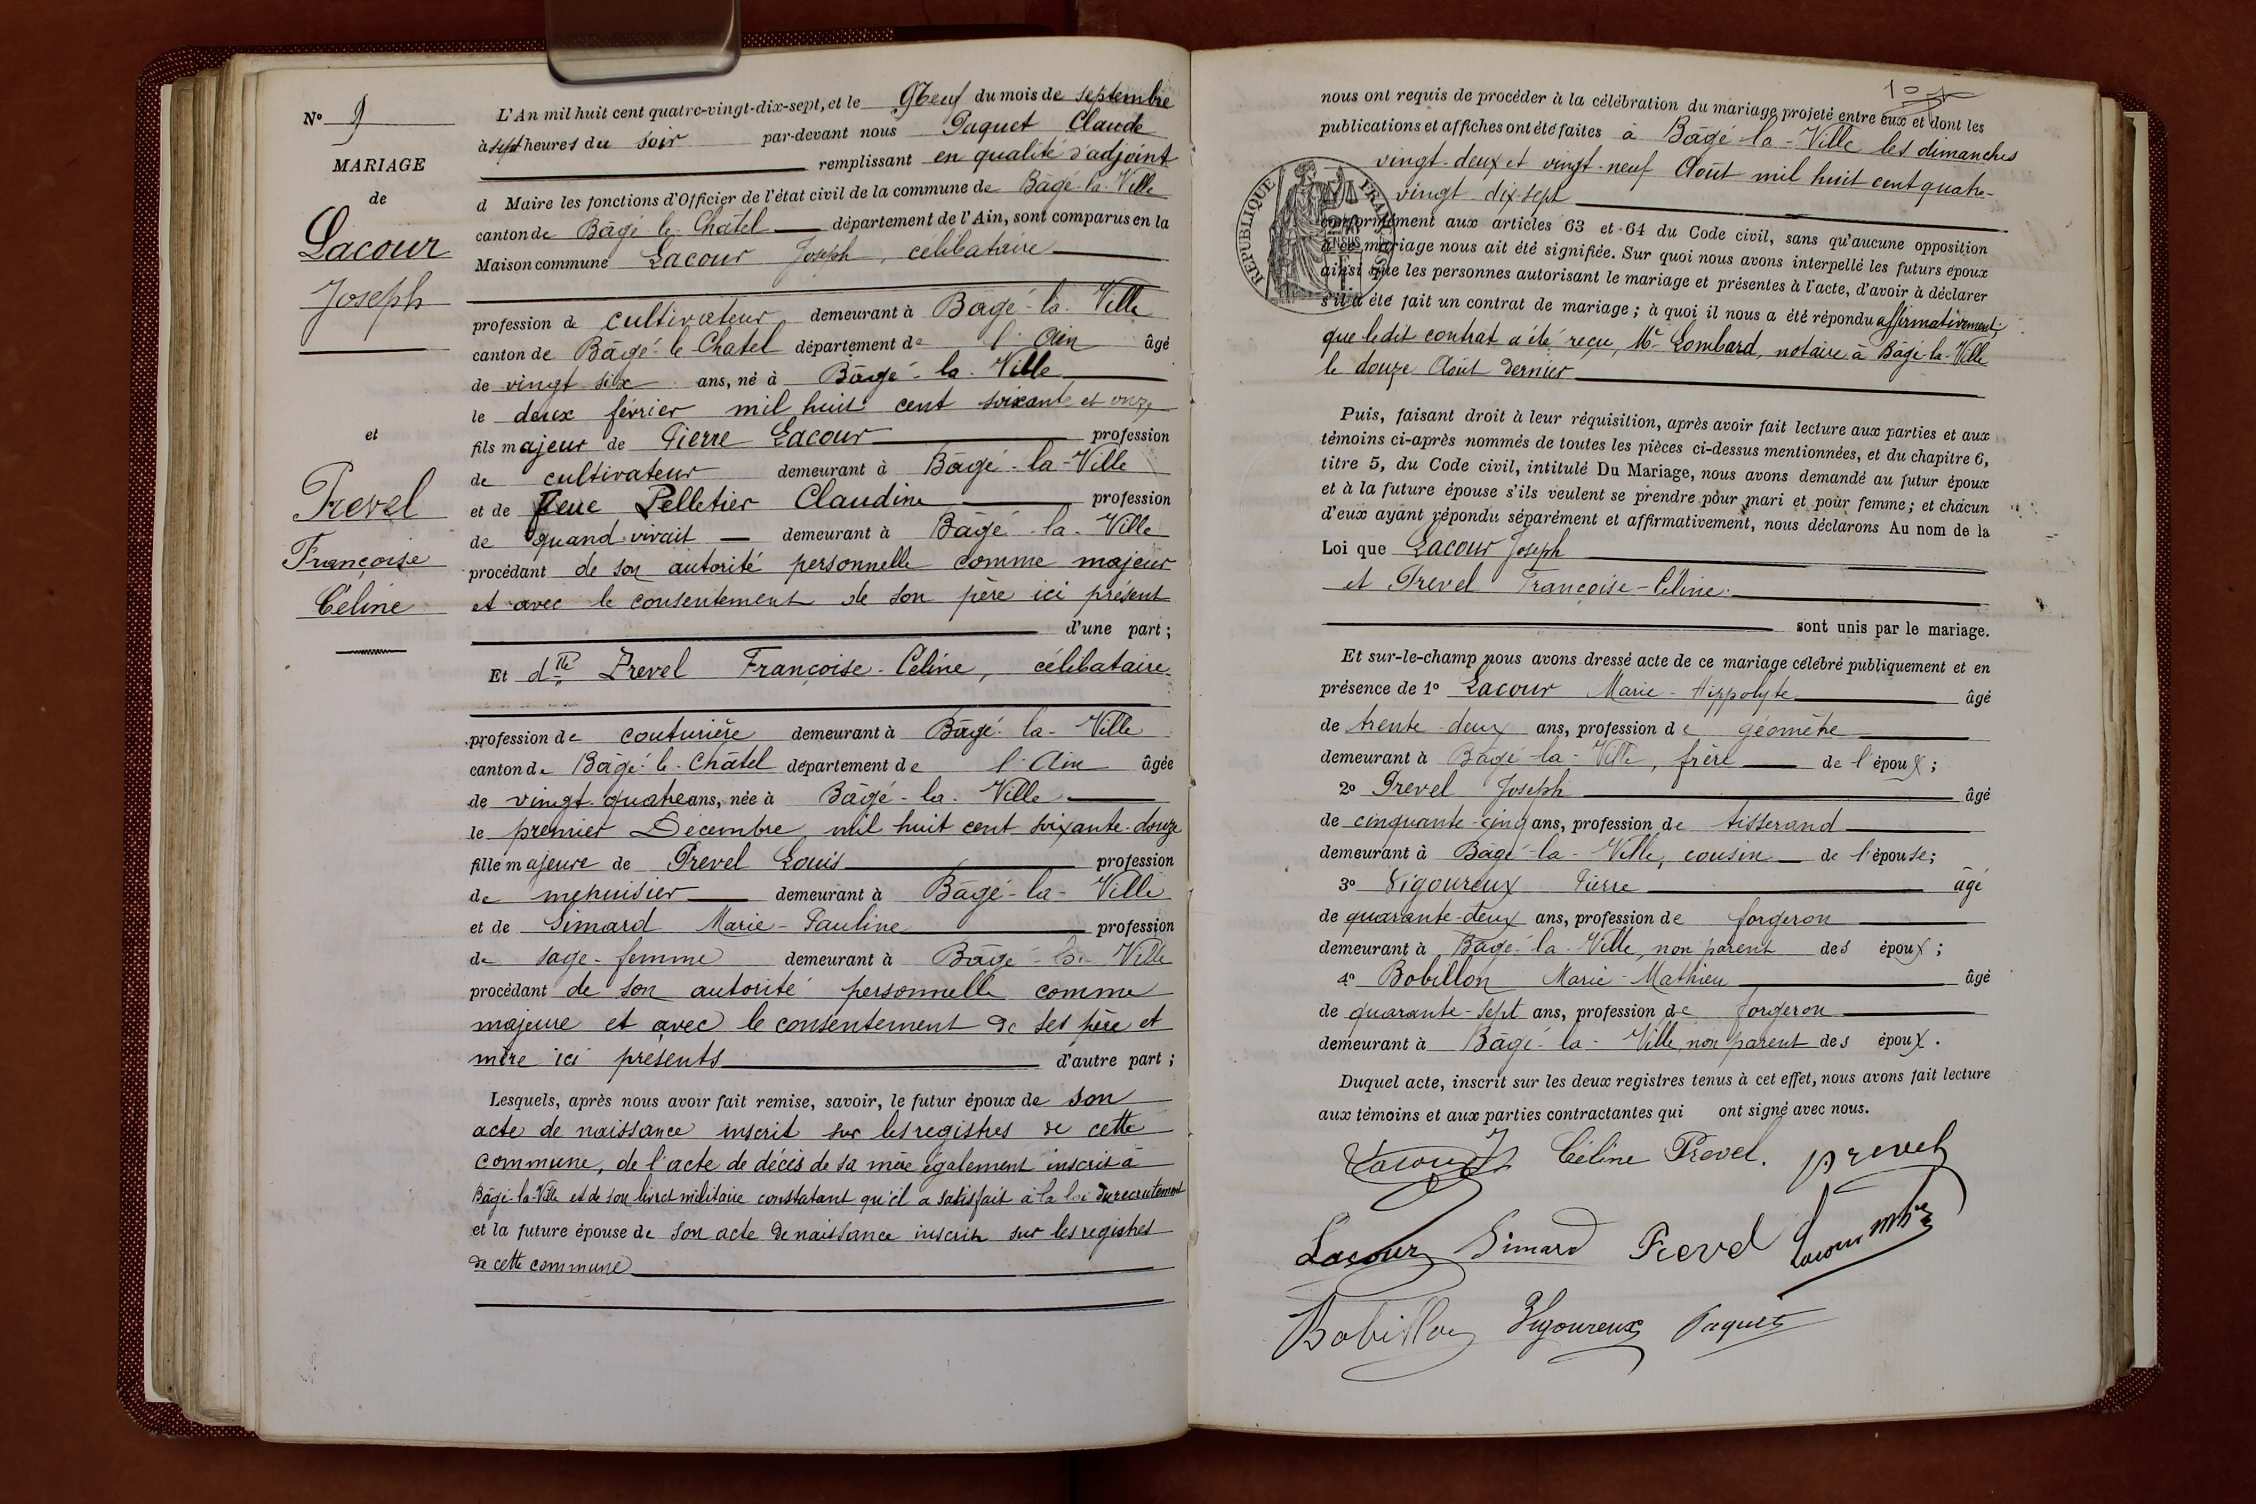 N° 9
MARIAGE
de
Lacour
Joseph
et
Prevel
Françoise
Céline
L'An mil huit cent quatre-vingt-dix-sept, et le Neuf du mois de septembre
à sept heures du soir par-devant nous Paquet Claude
remplissant en qualité d'adjoint
d Maire les fonctions d'Officier de l'état civil de la commune de Bâgé-la-Ville
canton de Bâgé-le-Châtel département de l'Ain, sont comparus en la
Maison commune Lacour Joseph, célibataire
profession de cultivateur demeurant à Bâgé-la-Ville
canton de Bâgé-le-Châtel département de l'Ain âgé
de vingt six ans, né à Bâgé-la-Ville
le deux février mil huit cent soixante et onze
fils majeur de Pierre Lacour profession
de cultivateur demeurant à Bâgé-la-Ville
et de feue Pelletier Claudine profession
de quand vivait demeurant à Bâgé-la-Ville
procédant de son autorité personnelle comme majeur
et avec le consentement de son père ici présent
d'une part ;
Et dlle Prevel Françoise-Céline, célibataire
profession de couturière demeurant à Bâgé-la-Ville
canton de Bâgé-le-Châtel département de l'Ain âgée
de vingt-quatre ans, née à Bâgé-la-Ville
le premier Décembre mil huit cent soixante-douze
fille majeure de Prevel Louis profession
de menuisier demeurant à Bâgé-la-Ville
et de Simard Marie-Pauline profession
de sage-femme demeurant à Bâgé-la-Ville
procédant de son autorité personnelle comme
majeure et avec le consentement de ses père et
mère ici présents d'autre part ;
Lesquels, après nous avoir fait remise, savoir, le futur époux de son
acte de naissance inscrit sur les registres de cette
commune, de l'acte de décès de sa mère également inscrit à
Bâgé-la-Ville et de son livret militaire constatant qu'il a satisfait à la loi du recrutement
et la future épouse de son acte de naissance inscrit sur les registres
de cette commune
nous ont requis de procéder à la célébration du mariage projeté entre eux et dont les
publications et affiches ont été faites à Bâgé-la-Ville les dimanches
vingt-deux et vingt-neuf Août mil huit cent quatre-
vingt-dix-sept
RÉPUBLIQUE FRANÇAISE
conformément aux articles 63 et 64 du Code civil, sans qu'aucune opposition
à ce mariage nous ait été signifiée. Sur quoi nous avons interpellé les futurs époux
ainsi que les personnes autorisant le mariage et présentes à l'acte, d'avoir à déclarer
s'il a été fait un contrat de mariage ; à quoi il nous a été répondu affirmativement,
que ledit contrat a été reçu, Me Lombard, notaire à Bâgé-la-Ville
le douze Août dernier
Puis, faisant droit à leur réquisition, après avoir fait lecture aux parties et aux
témoins ci-après nommés de toutes les pièces ci-dessus mentionnées, et du chapitre 6,
titre 5, du Code civil, intitulé Du Mariage, nous avons demandé au futur époux
et à la future épouse s'ils veulent se prendre pour mari et pour femme ; et chacun
d'eux ayant répondu séparément et affirmativement, nous déclarons Au nom de la
Loi que Lacour Joseph
et Prevel Françoise-Céline
sont unis par le mariage.
Et sur-le-champ nous avons dressé acte de ce mariage célébré publiquement et en
présence de 1° Lacour Marie-Hippolyte âgé
de trente-deux ans, profession de géomètre
demeurant à Bâgé-la-Ville, frère de l'époux ;
2° Prevel Joseph âgé
de cinquante-cinq ans, profession de tisserand
demeurant à Bâgé-la-Ville, cousin de l'épouse ;
3° Vigoureux Pierre âgé
de quarante-deux ans, profession de forgeron
demeurant à Bâgé-la-Ville, non parent des époux ;
4° Bobillon Marie-Mathieu âgé
de quarante-sept ans, profession de forgeron
demeurant à Bâgé-la-Ville, non parent des époux.
Duquel acte, inscrit sur les deux registres tenus à cet effet, nous avons fait lecture
aux témoins et aux parties contractantes qui ont signé avec nous.
Lacour J Céline Prevel. Prevel
Lacour Simard Prevel Lacour
Bobillon Vigoureux Paquet